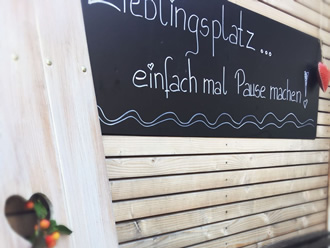 Lieblingsplatz...
einfach mal Pause machen!